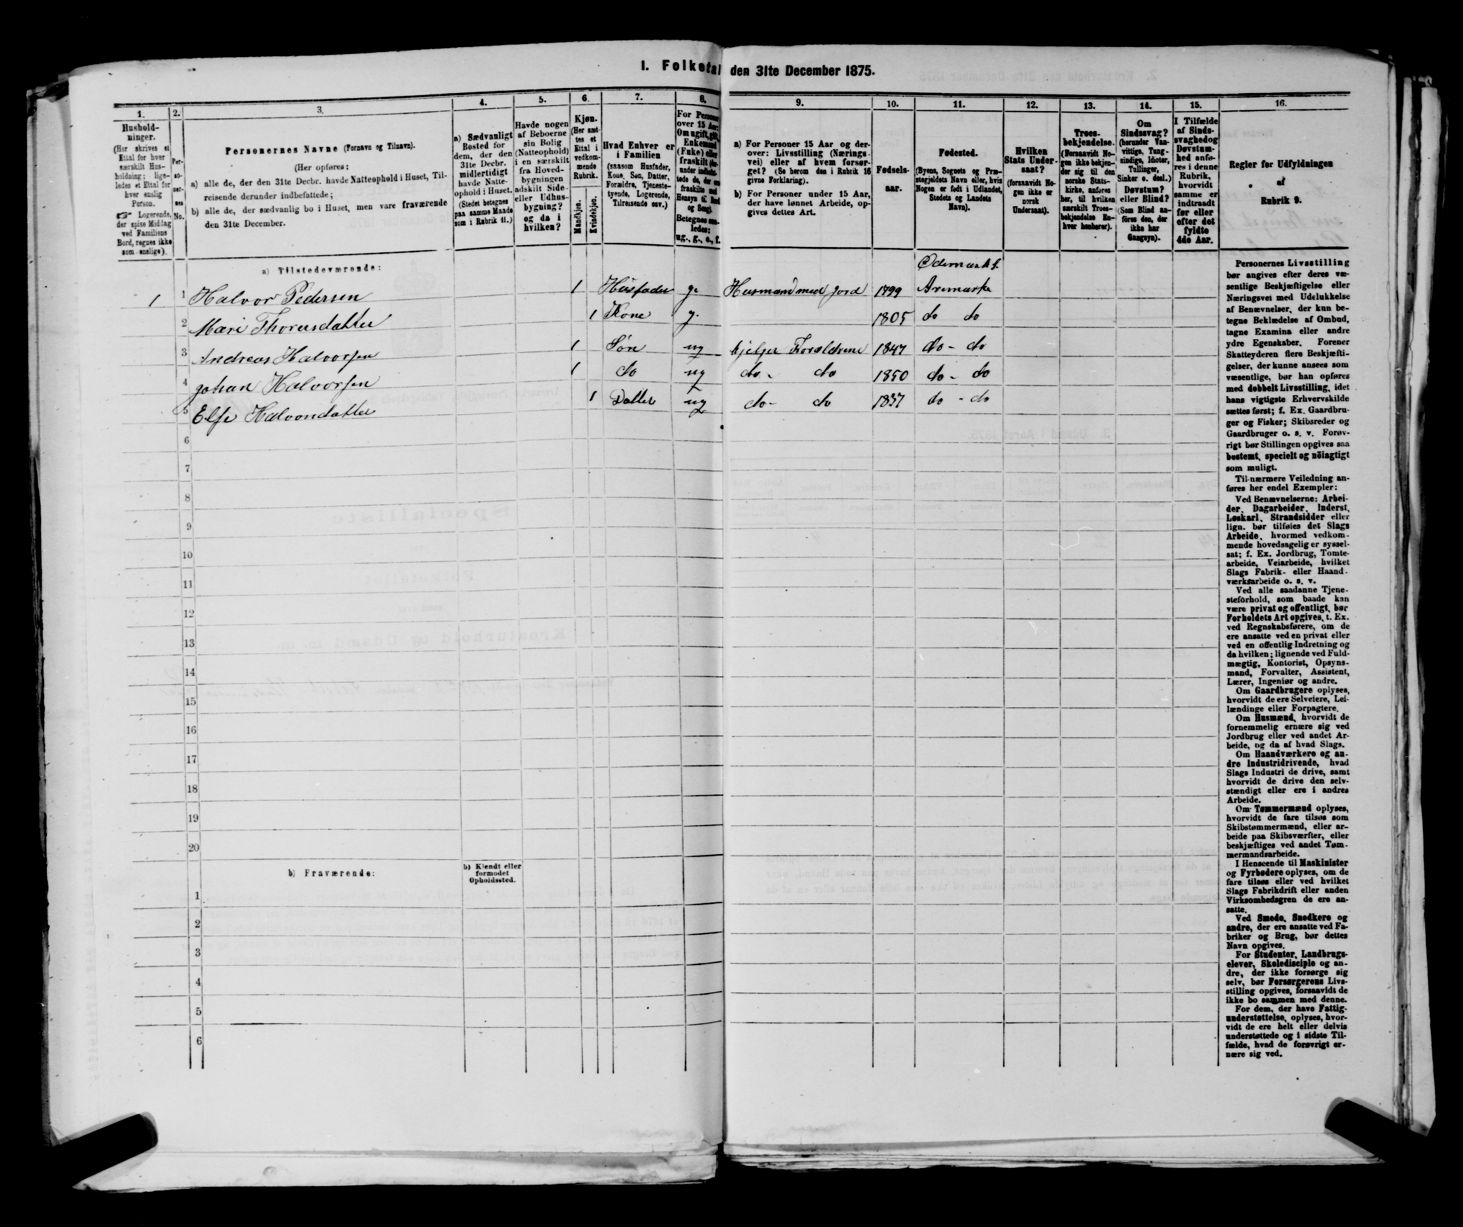 I. Folketal den 31te December 1875.
1. 2. 3. 4. 5. 6. 7. 8. 9. 10. 11. 12. 13. 14. 15. 16.
Hushold-
ninger.
(Her skrives et
Ettal for hver
særskilt Hus-
holdning; lige-
ledes et Ettal for
hver enslig
Person.
☞ Logerende,
der spise Middag
ved Familiens
Bord, regnes ikke
som enslige).
Per-
so-
ner-
nes
No.
Personernes Navne (Fornavn og Tilnavn).
(Her opføres:
a) alle de, der den 31te Decbr. havde Natteophold i Huset, Til-
reisende derunder indbefattede;
b) alle de, der sædvanlig bo i Huset, men vare fraværende
den 31te December.
a) Sædvanligt
Bosted for
dem, der den
31te Decbr. i
midlertidigt
havde Natte-
ophold i Huset.
(Stedet betegnes
paa samme Maade
som i Rubrik 11.)
Havde nogen
af Beboerne
sin Bolig
(Natteophold)
i en særskilt
fra Hoved-
bygningen
adskilt Side-
eller Udhus-
bygning?
og da i
hvilken?
Kjøn.
(Her sæt-
tes et
Ettal i
vedkom-
mende
Rubrik.
Mandkjøn.
Kvindekjøn.
Hvad Enhver er
i Familien
(saasom Husfader,
Kone, Søn, Datter,
Forældre, Tjeneste-
tyende, Logerende,
Tilreisende osv.)
For Personer
over 15 Aar:
Om ugift, gift,
Enkemand
(Enke) eller
fraskilt
Betegnes saa-
ledes:
ug., g., e., f.
a) For Personer 15 Aar og der-
over: Livsstilling (Nærings-
vei) eller af hvem forsør-
get? (Se herom den i Rubrik 16
givne Forklaring).
b) For Personer under 15 Aar,
der have lønnet Arbeide, op-
gives dettes Art.
Fødsels-
aar.
Fødested.
(Byens, Sognets og Præ-
stegjeldets Navn eller, hvis
Nogen er født i Udlandet,
Stedets og Landets
Navn).
Hvilken
Stats Under-
saat?
(forsaavidt No-
gen ikke er
norsk
Undersaat).
Troes-
bekjendelse.
(Forsaavidt No-
gen ikke bekjen-
der sig til den
norske Stats-
kirke, anføres
her, til hvilken
særskilt Troes-
bekjendelse En-
hver henhører).
Om
Sindssvag?
(herunder Van-
vittige, Tung-
sindige, Idioter,
Tullinger,
Sinker o. desl.)
Døvstum?
eller Blind?
(Som Blind an-
føres den, der
ikke har
Gangsyn).
I Tilfælde
af Sinds-
svaghed og
Døvstum-
hed anfø-
res i denne
Rubrik,
hvorvidt
samme er
indtraadt
før eller
efter det
fyldte
4de Aar.
Regler for Udfyldningen
af
Rubrik 9.
a) Tilstedeværende:
1 1 Halvor Pedersen 1 Husfader g. Husmand med Jord 1799 Ødemarks s. Aremarke
2 Mari Thorersdatter 1 Kone g. 1805 do do
3 Andreas Halvorsen 1 Søn ug hjelper Forældrene 1847 do - do
4 Johan Halvorsen 1 do ug do - do 1850 do - do
5 Else Halvorsdatter 1 Datter ug do - do 1837 do - do
6
7
8
9
10
11
12
13
14
15
16
17
18
19
20
b) Fraværende:
b) Kjendt eller
formodet
Opholdssted.
1
2
3
4
5
6
Personernes Livsstilling
bør angives efter deres væ-
sentlige Beskjæftigelse eller
Næringsvei med Udelukkelse
af Benævnelser, der kun be-
tegne Beklædelse af Ombud,
tagne Examina eller andre
ydre Egenskaber. Forener
Skatteyderen flere Beskjæfti-
gelser, der kunne ansees som
væsentlige, bør han opføres
med dobbelt Livsstilling, idet
hans vigtigste Erhvervskilde
sættes først; f. Ex. Gaardbru-
ger og Fisker; Skibsreder og
Gaardbruger o. s. v. Forøv-
rigt bør Stillingen opgives saa
bestemt, specielt og nöiagtigt
som muligt.
Til nærmere Veiledning an-
føres her endel Exempler:
Ved Benævnelserne: Arbei-
der, Dagarbeider, Inderst,
Løskarl, Strandsidder eller
lign. bør tilføies det Slags
Arbeide, hvormed vedkom-
mende hovedsagelig er syssel-
sat; f. Ex. Jordbrug, Tomte-
arbeide, Veiarbeide, hvilket
Slags Fabrik- eller Haand-
værksarbeide o. s. v.
Ved alle saadanne Tjene-
steforhold, som baade kan
være privat og offentligt, bør
Forholdets Art opgives, t. Ex.
ved Regnskabsførere, om de
ere ansatte ved en privat eller
ved en offentlig Indretning og
da hvilken; lignende ved Fuld-
mægtig, Kontorist, Opsyns-
mand, Forvalter, Assistent,
Lærer, Ingeniør og andre.
Om Gaardbrugere oplyses,
hvorvidt de ere Selveiere, Lei-
lændinge eller Forpagtere.
Om Husmænd, hvorvidt de
fornemmelig ernære sig ved
Jordbrug eller ved andet Ar-
beide, og da af hvad Slags.
Om Haandværkere og an-
dre Industridrivende, hvad
Slags Industri de drive, samt
hvorvidt de drive den selv-
stændigt eller ere i andres
Arbeide.
Om Tømmermænd oplyses,
hvorvidt de fare tilsøs som
Skibstømmermænd, eller ar-
beide paa Skibsværfter, eller
beskjæftiges ved andet Tøm-
mermandsarbeide.
I Henseende til Maskinister
og Fyrbødere oplyses, om de
fare tilsøs eller ved hvilket
Slags Fabrikdrift eller anden
Virksomhedsgren de ere an-
satte.
Ved Smede, Snedkere og
andre, der ere ansatte ved Fa-
briker og Brug, bør dettes
Navn opgives.
For Studenter, Landbrugs-
elever, Skoledisciple og an-
dre, der ikke forsørge sig
selv, bør Forsørgerens Livs-
stilling opgives, forsaavidt de
ikke bo sammen med denne.
For dem, der have Fattig-
understøttelse, oplyses, hvor-
vidt de ere helt eller delvis
understøttede og i sidste Til-
fælde, hvad de forøvrigt er-
nære sig ved.